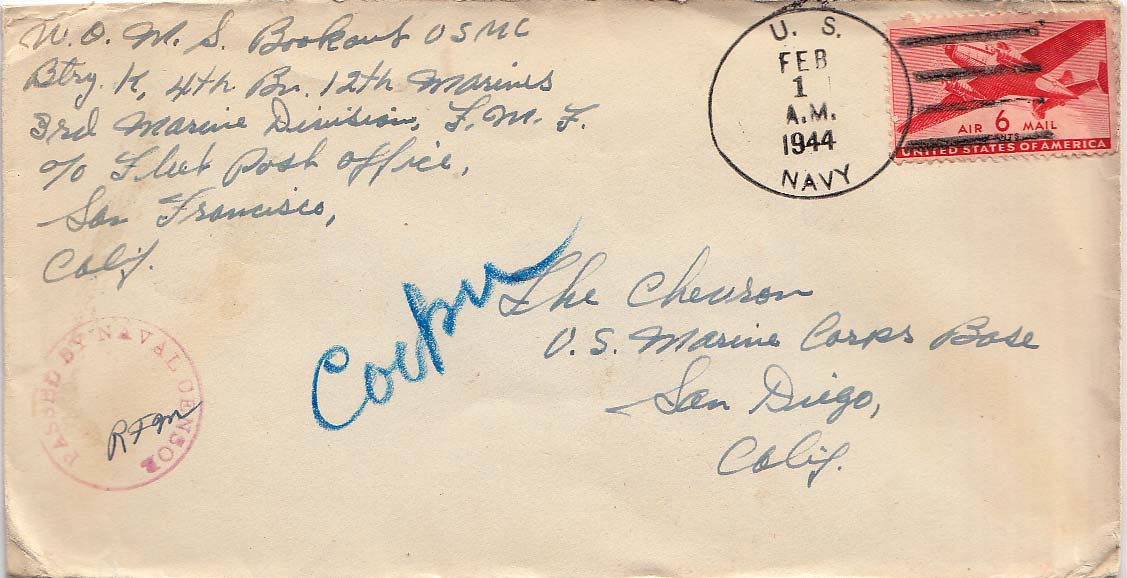 W. O. M. S. Bookout USMC
Btry. K, 4th Bn. 12th Marines
3rd Marine Division, F. M. F.
c/o Fleet Post Office,
San Francisco,
Calif.
U. S.
FEB
1
A.M.
1944
NAVY
AIR 6 MAIL
CENTS
UNITED STATES OF AMERICA
The Chevron
U. S. Marine Corps Base
San Diego,
Calif.
PASSED BY NAVAL CENSOR
RFM